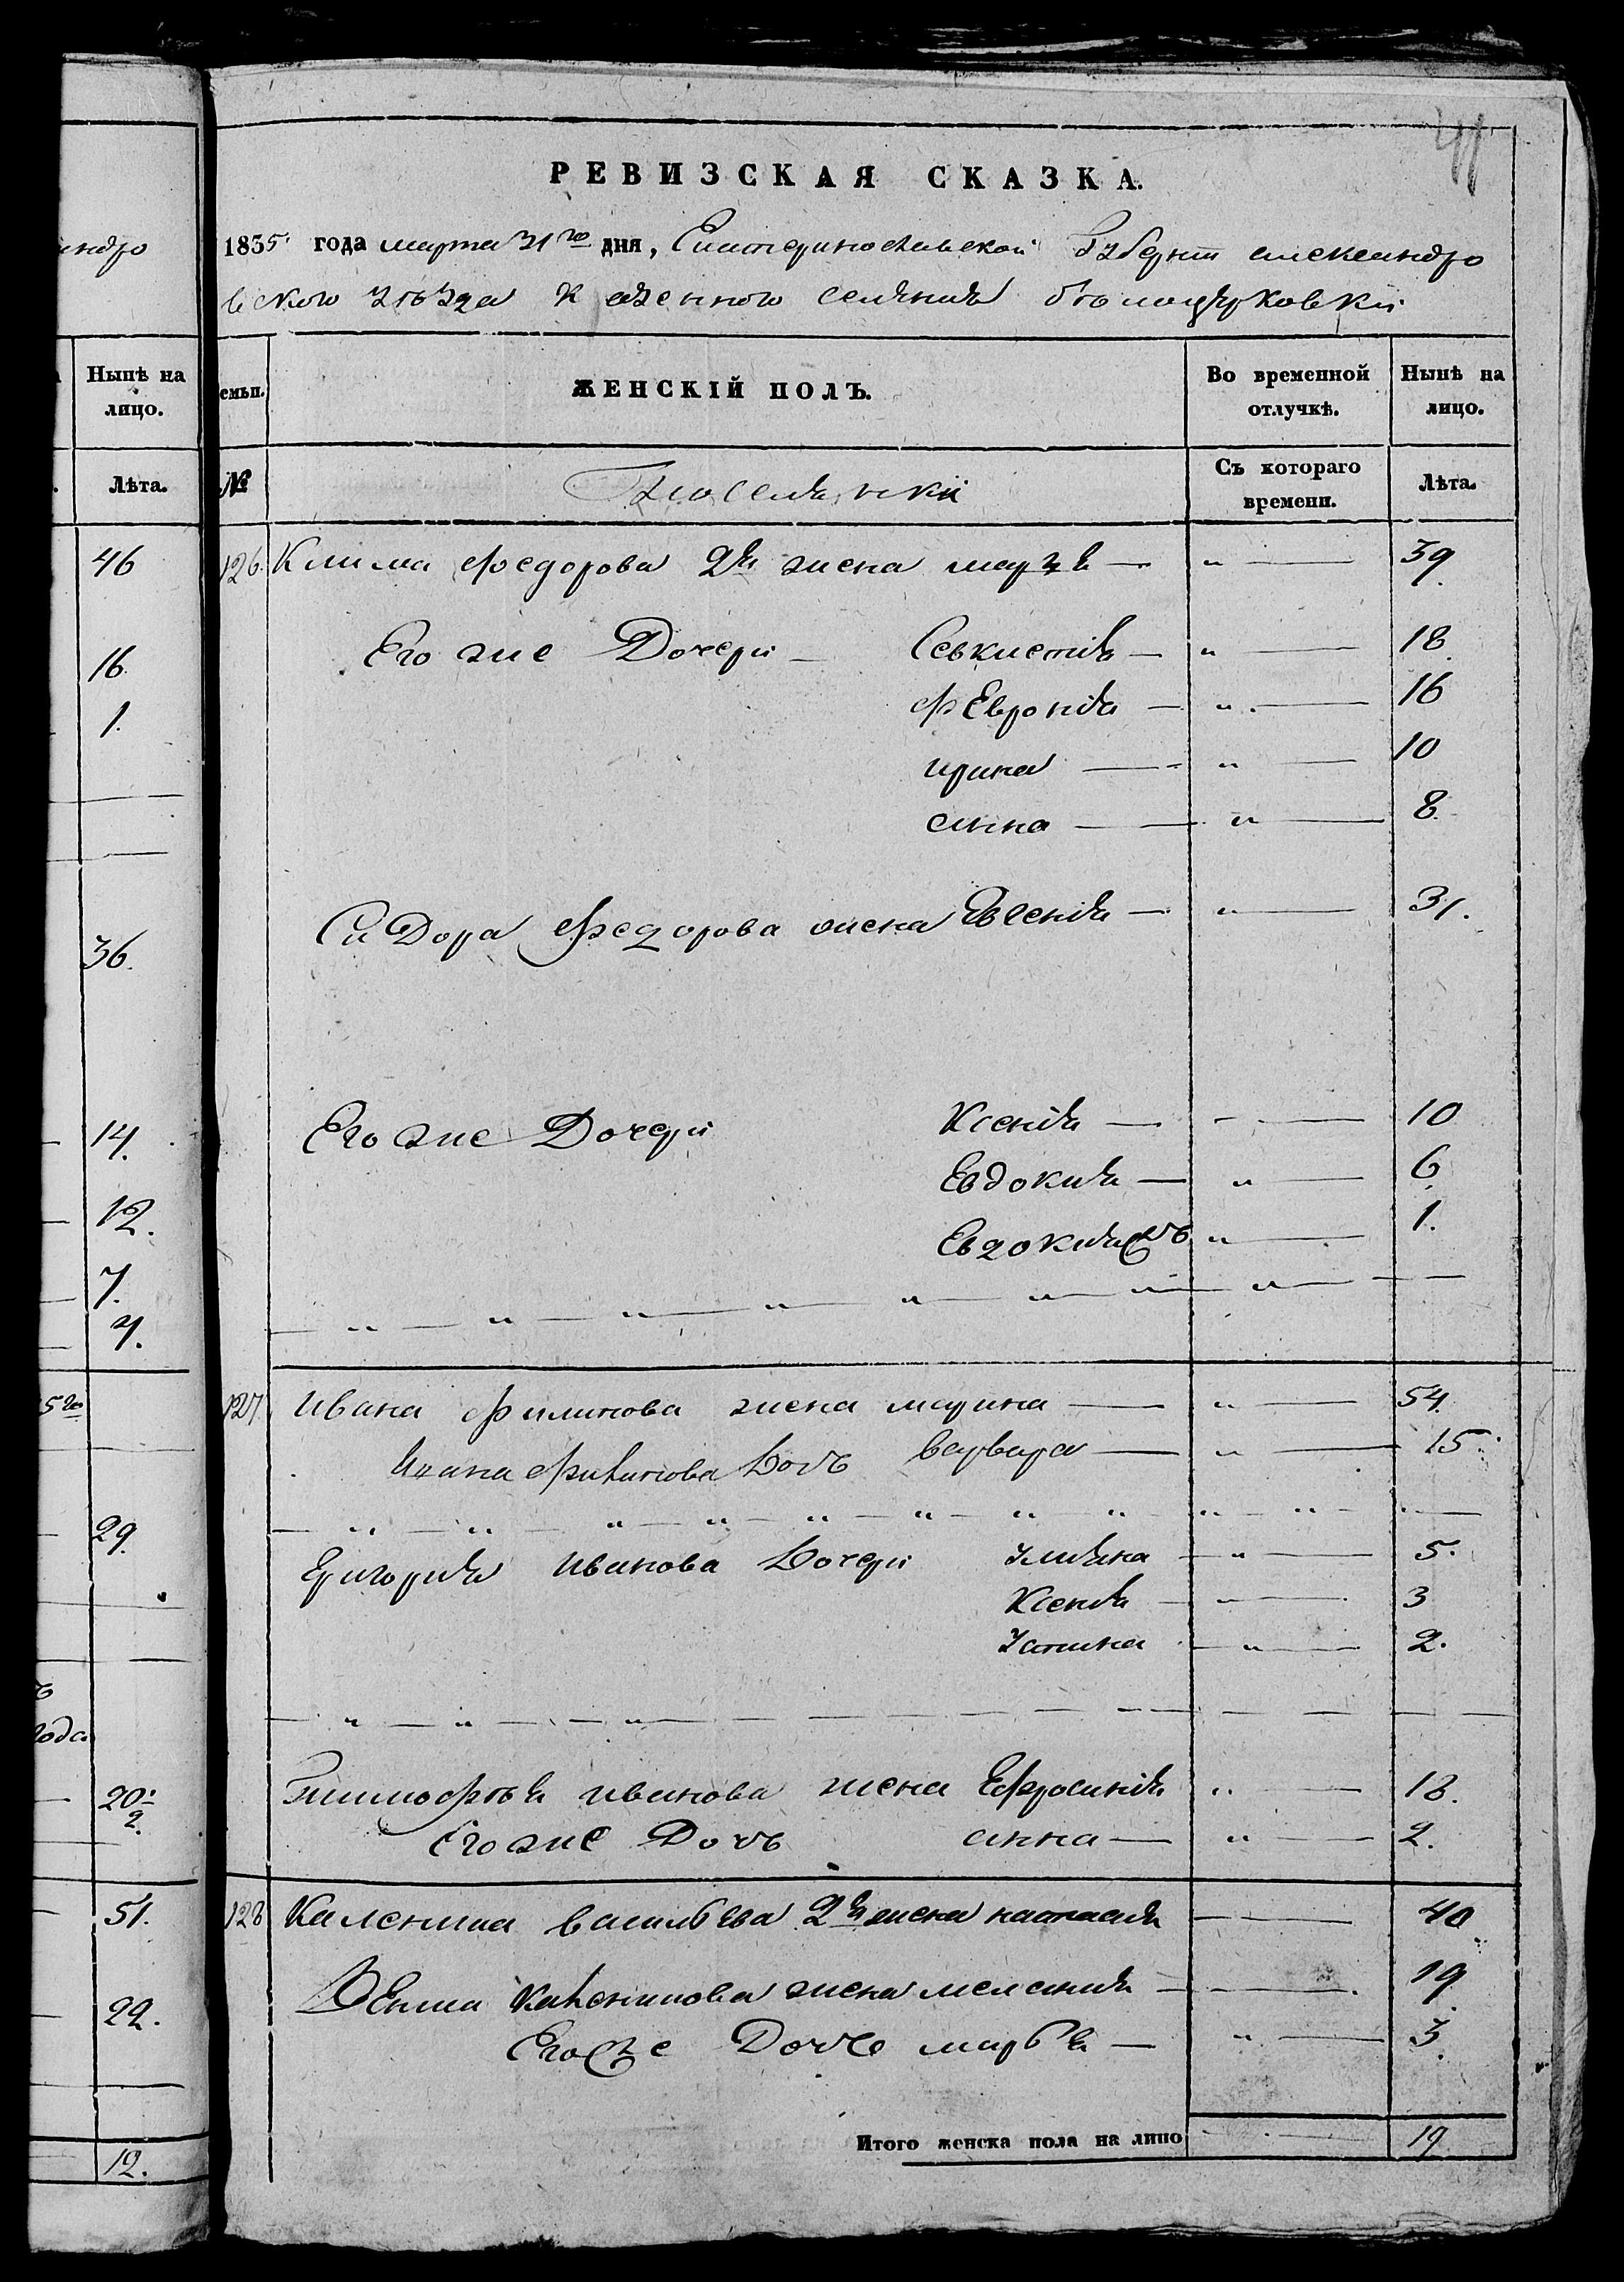 41
РЕВИЗСКАЯ СКАЗКА.
1835 года марта 31го дня, Екатеринославской Губернии александро
вского уезда казенного селения белоцерковки
индро
Ныне на лицо.
Лѣта.
46
16.
1.
36.
14.
12.
7.
4.
29.
года
20.
2.
51.
22.
12.
емьи. ЖЕНСКІЙ ПОЛЪ. Во временной отлучкѣ. Нынѣ на лицо.
№ Съ котораго времени. Лѣта.
126. Клима федорова 2я жена марья — " — 39
Его же Дочери — Севкистия — " — 18
февронія — " — 16
ирина — " — 10
анна — " — 8
Сидора федорова жена Евгенія — " — 31.
Его же Дочери Ксенія — " — 10
Евдокия — " — 6
Евдокия — " — 1.
127 Ивана филипова жена марина — " — 54.
Ивана филипова дочь варвара — " — 15.
Григория Иванова дочери Улияна — " — 5.
Ксения — " — 3
Устина — " — 2.
Тимофѣя иванова жена Ефросинія " — 18.
Его же Дочь анна — " — 2.
128 Каленика васильева 2я жена настасия — 40
каленикова жена меланія — 19
Его же Дочь марья — " — 3.
Итого женска пола на лицо 19